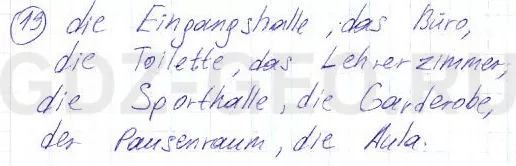 19 die Eingangshalle, das Büro,
die Toilette, das Lehrerzimmer,
die Sporthalle, die Garderobe,
der Pausenraum, die Aula.